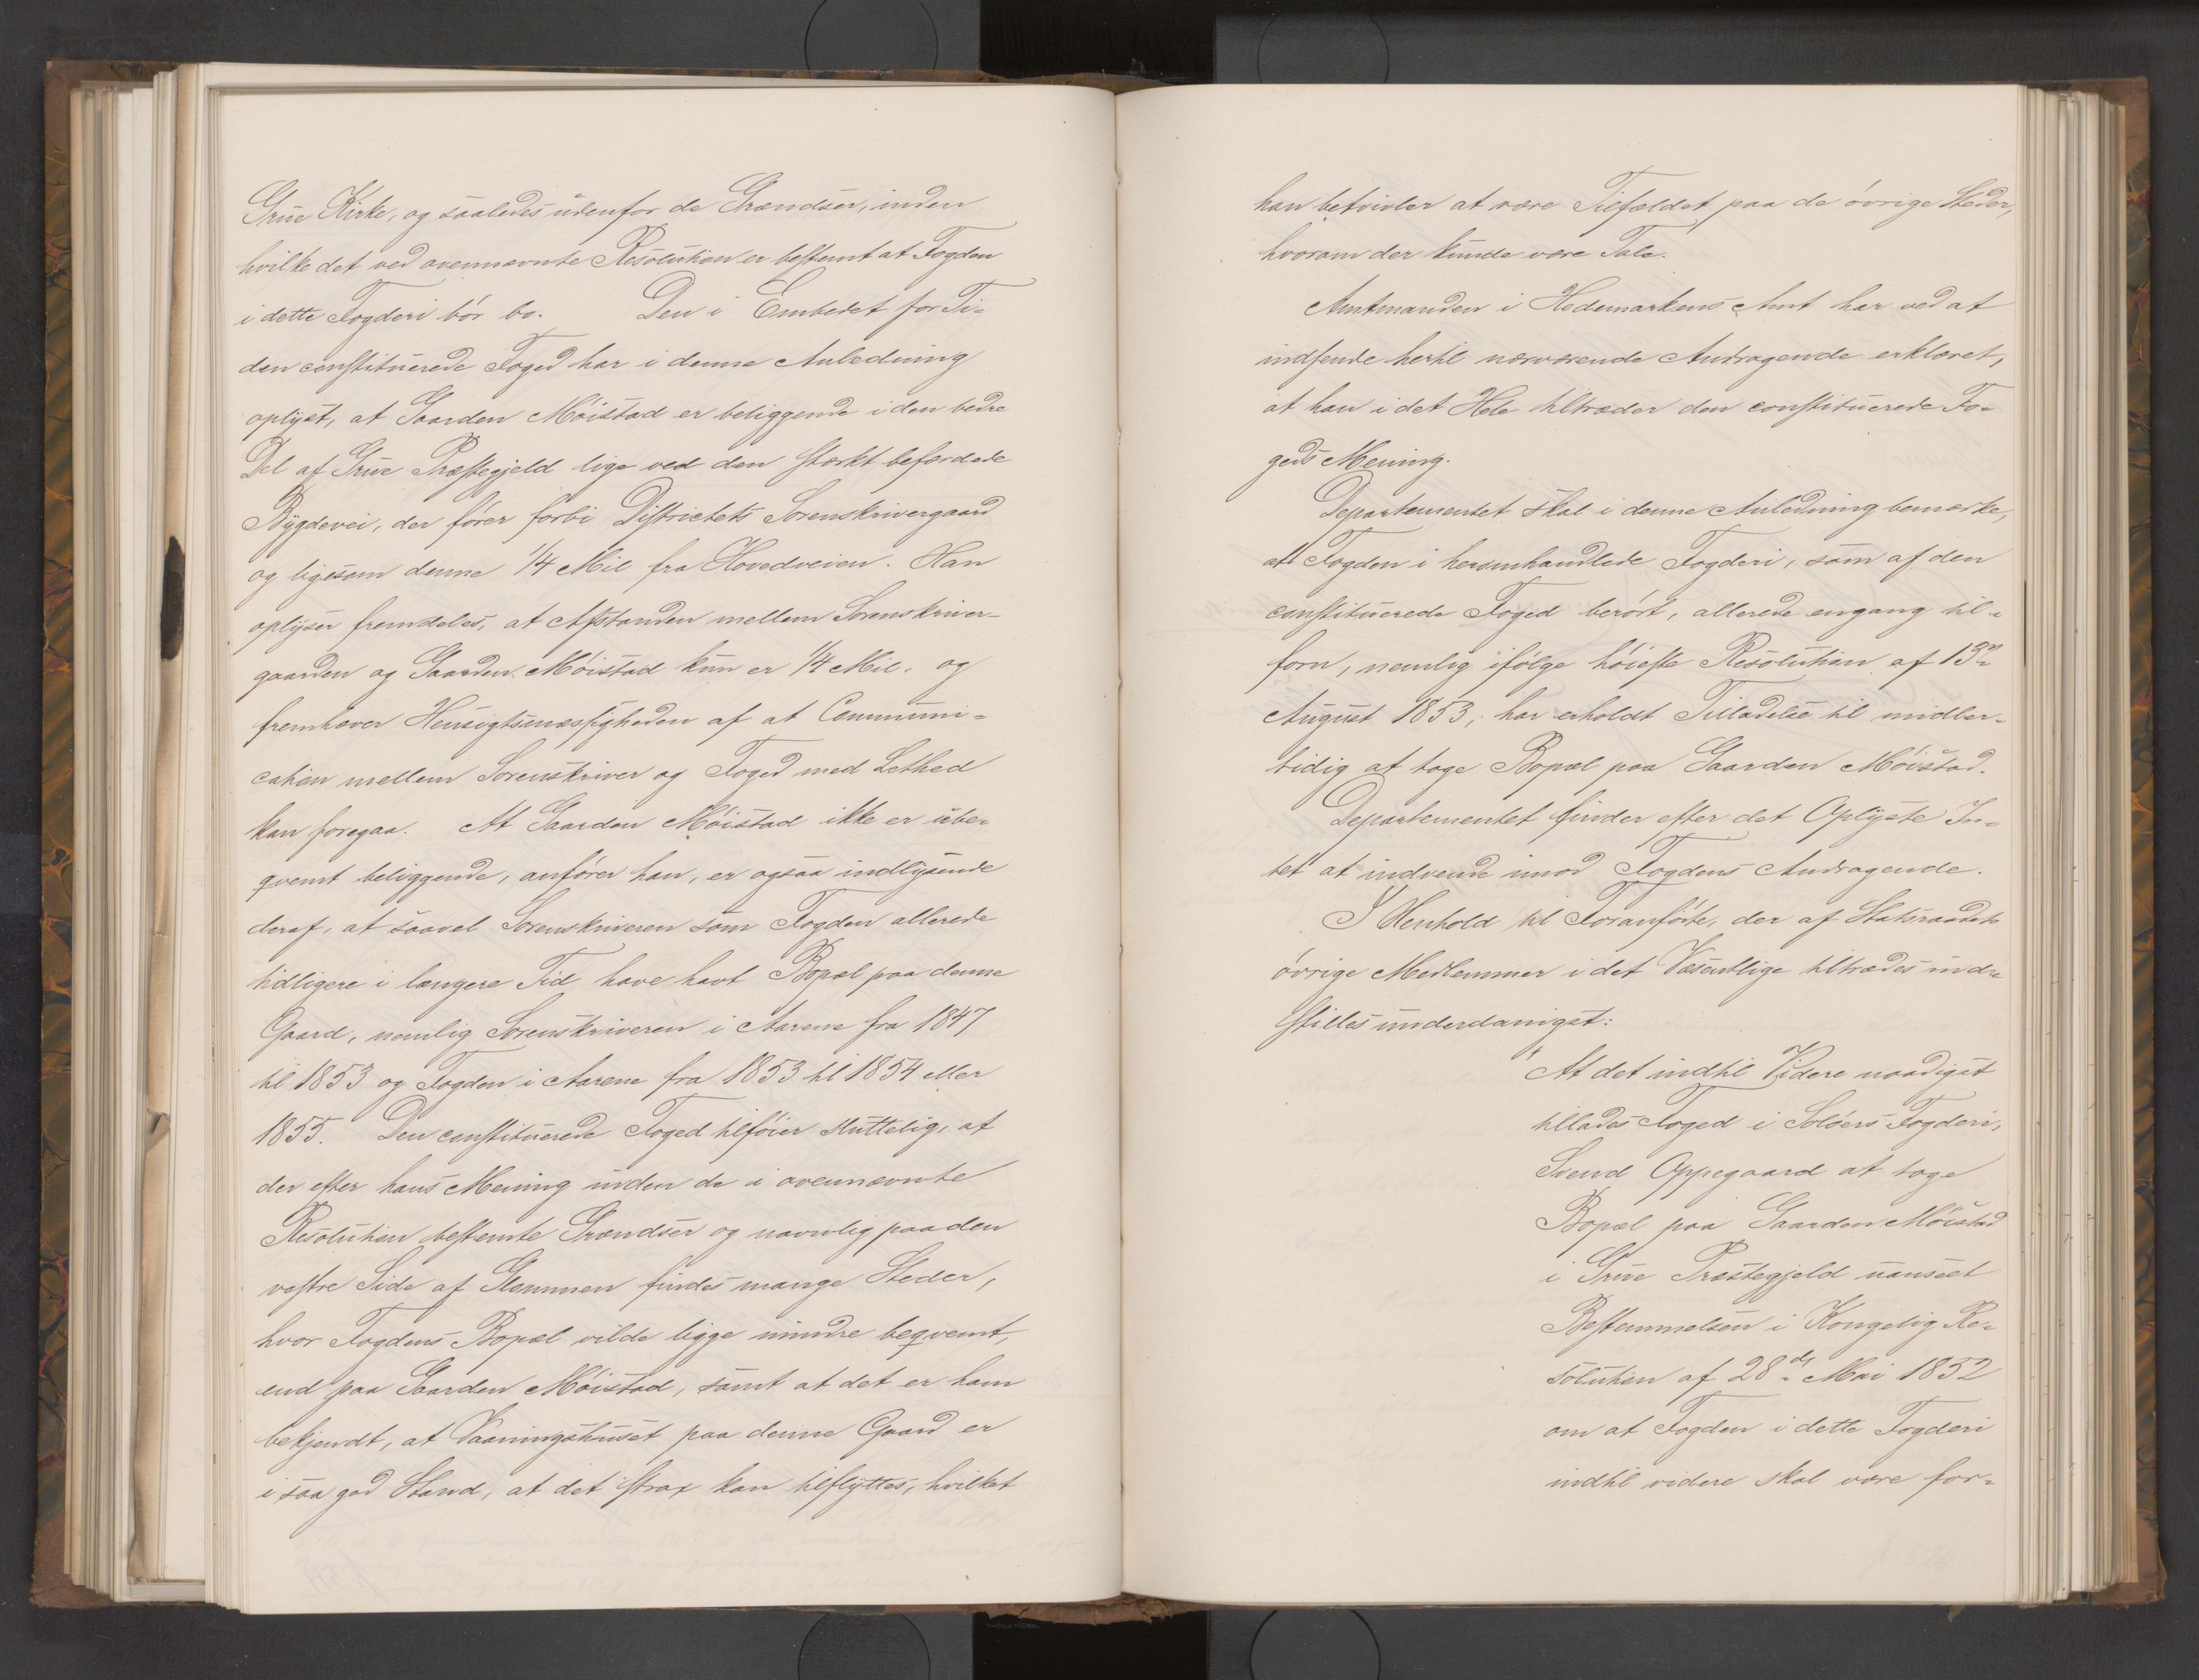 Grue Kirke, og saaledes udenfor de Grændser, inden
hvilke det ved ovennævnte Resolution er bestemt at Fogden
i dette Fogderi bör bo. Den i Embedet for Ti-
den constituerede Foged har i denne Anledning
oplyst, at Gaarden Möistad er beliggende i den bedre
Del af Grue Præstegjeld lige ved den stærkt befærdede
Bygdevei, der förer forbi Districtets Sorenskrivergaard
og ligesom denne 1/4 Mil fra Hovedveien. Han
oplyser fremdeles, at Afstanden mellem Sorenskriver-
gaarden og Gaarden Möistad kun er 1/4 Mil, og
fremhæver Hensigtsmæssigheden af at Communi-
cation mellem Sorenskriver og Foged med Lethed
kan foregaa. At Gaarden Möistad ikke er ube-
qvemt beliggende, anförer han, er ogsaa indlysende
deraf, at saavel Sorenskriveren som Fogden allerede
tidligere i længere Tid have havt Bopæl paa denne
Gaard, nemlig Sorenskriveren i Aarene fra 1847
til 1853 og Fogden i Aarene fra 1853 til 1854 eller
1855. Den constituerede Foged tilföier sluttelig, at
der efter hans Mening inden de i ovennævnte
Resolution bestemte Grændser og navnlig paa den
vestre Side af Glommen findes mange Steder,
hvor Fogdens Bopæl vilde ligge mindre beqvemt,
end paa Gaarden Möistad, samt at det er ham
bekjendt, at Vaaningshuset paa denne Gaard er
i saa god Stand, at det strax kan tilflyttes, hvilket
han betvivler at være Tilfældet paa de övrige Steder,
hvorom der kunde være Tale.
Amtmanden i Hedemarkens Amt har ved at
indsende hertil nærværende Andragende erklæret,
at han i det Hele tiltræder den constituerede Fo-
geds Mening.
Departementet skal i denne Anledning bemærke,
at Fogden i heromhandlede Fogderi, som af den
constituerede Foged berört, allerede engang til-
forn, nemlig ifölge höieste Resolution af 13de
August 1853, har erholdt Tilladelse til midler-
tidig at tage Bopæl paa Gaarden Möistad.
Departementet finder efter det Oplyste In-
tet at indvende imod Fogdens Andragende.
I Henhold til Foranförte, der af Statsraadets
övrige Medlemmer i det Væsentlige tiltrædes ind-
stilles underdanigst:
"At det indtil Videre naadigst
tillades Foged i Solöers Fogderi,
Svend Oppegaard at tage
Bopæl paa Gaarden Möistad
i Grue Præstegjeld uanseet
Bestemmelsen i Kongelig Re-
solution af 28de Mai 1852
om at Fogden i dette Fogderi
indtil videre skal være for-